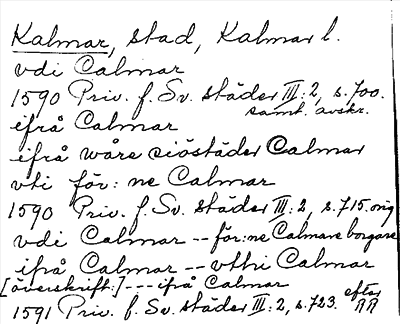 Kalmar, stad, Kalmar l.
vdi Calmar
1590 Priv. f. Sv. städer III:2, s. 700.
samt. avskr.
ifrå Calmar
ifrå wåre siöstäder Calmar
vti för:ne Calmar
1590 Priv. f. Sv. städer III:2, s. 715. orig
vdi Calmar -- för:ne Calmare borgare
ifrå Calmar -- vthi Calmar
[överskrift:] --- ifrå Calmar
1591 Priv. f. Sv. städer III:2, s. 723. efter RR